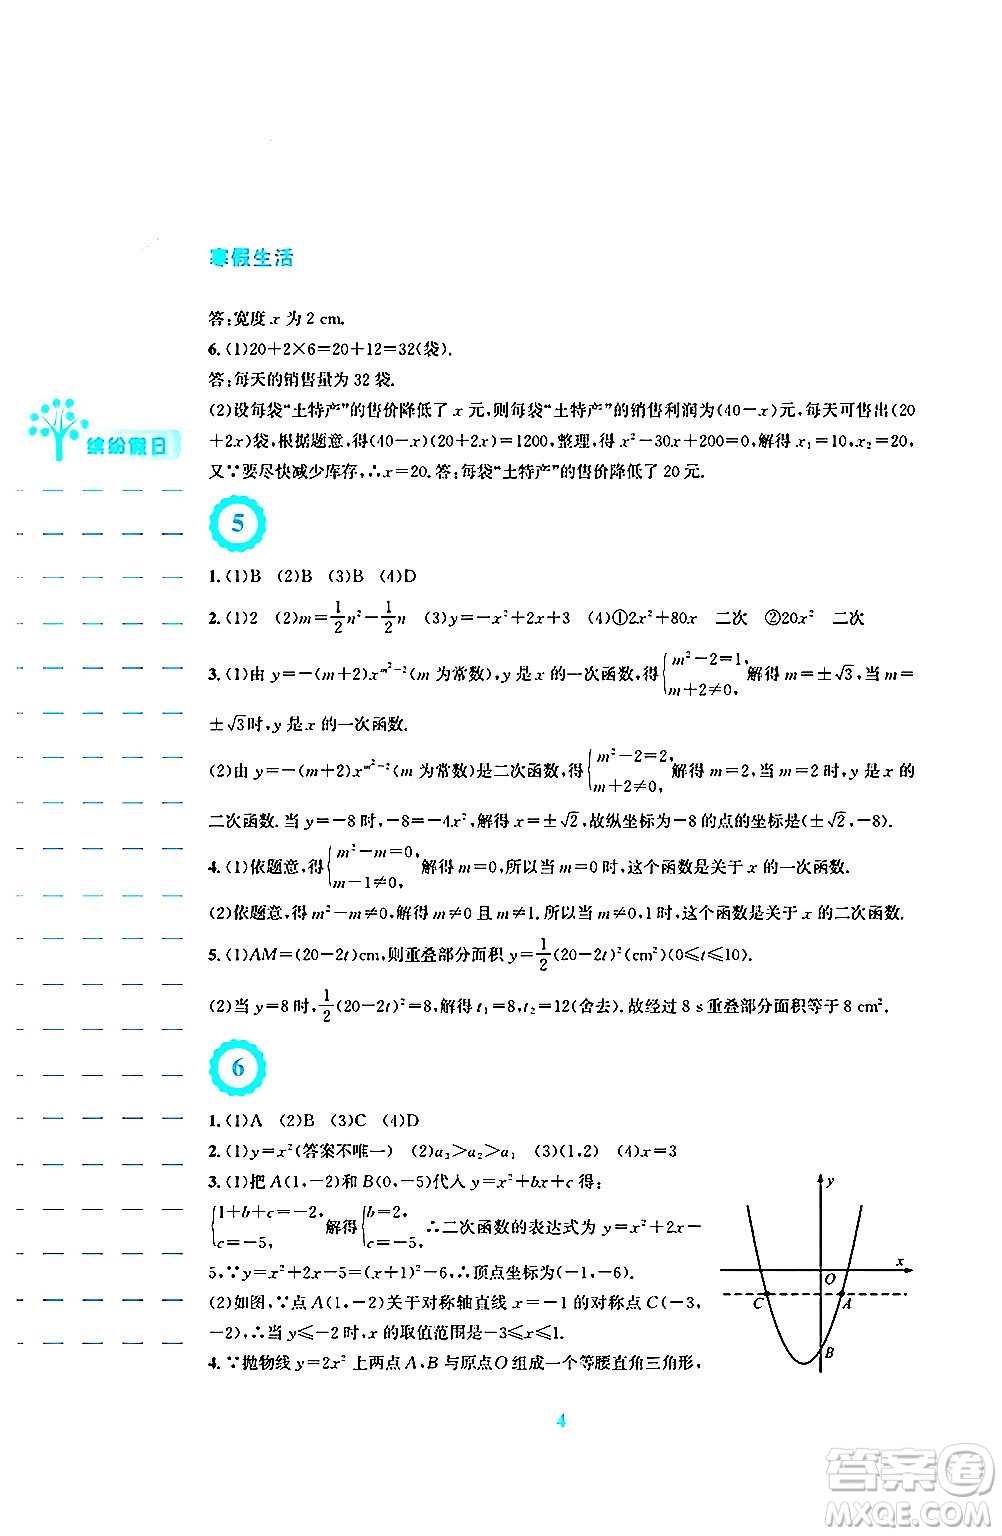 寒假生活
答:宽度 x 为 2 cm.
6. (1)20+2×6=20+12=32(袋).
答:每天的销售量为 32 袋.
(2)设每袋“土特产”的售价降低了 x 元,则每袋“土特产”的销售利润为(40-x)元,每天可售出(20
+2x)袋,根据题意,得(40-x)(20+2x)=1200,整理,得 x²-30x+200=0,解得 x₁=10,x₂=20,
又∵要尽快减少库存,∴x=20. 答:每袋“土特产”的售价降低了 20 元.
缤纷假日
5
1. (1)B (2)B (3)B (4)D
2. (1)2 (2)m=1/2n²-1/2n (3)y=-x²+2x+3 (4)①2x²+80x 二次 ②20x² 二次
3. (1)由 y=-(m+2)x^(m²-2)(m 为常数),y 是 x 的一次函数,得{m²-2=1, m+2≠0,解得 m=±√3,当 m=
±√3时,y 是 x 的一次函数.
(2)由 y=-(m+2)x^(m²-2)(m 为常数)是二次函数,得{m²-2=2, m+2≠0,解得 m=2,当 m=2 时,y 是 x 的
二次函数. 当 y=-8 时,-8=-4x²,解得 x=±√2,故纵坐标为-8 的点的坐标是(±√2,-8).
4. (1)依题意,得{m²-m=0, m-1≠0,解得 m=0,所以当 m=0 时,这个函数是关于 x 的一次函数.
(2)依题意,得 m²-m≠0,解得 m≠0 且 m≠1. 所以当 m≠0,1 时,这个函数是关于 x 的二次函数.
5. (1)AM=(20-2t)cm,则重叠部分面积 y=1/2(20-2t)²(cm²)(0≤t≤10).
(2)当 y=8 时,1/2(20-2t)²=8,解得 t₁=8,t₂=12(舍去). 故经过 8 s 重叠部分面积等于 8 cm².
6
1. (1)A (2)B (3)C (4)D
2. (1)y=x²(答案不唯一) (2)a₃>a₂>a₁ (3)(1,2) (4)x=3
3. (1)把 A(1,-2)和 B(0,-5)代入 y=x²+bx+c 得:
{1+b+c=-2, c=-5,解得{b=2, c=-5, ∴二次函数的表达式为 y=x²+2x-
5,∵y=x²+2x-5=(x+1)²-6,∴顶点坐标为(-1,-6).
(2)如图,∵点 A(1,-2)关于对称轴直线 x=-1 的对称点 C(-3,
-2),∴当 y≤-2 时,x 的取值范围是-3≤x≤1.
4. ∵抛物线 y=2x² 上两点 A,B 与原点 O 组成一个等腰直角三角形,
y
x
O
C
A
B
4
答案圈
MXQE.COM